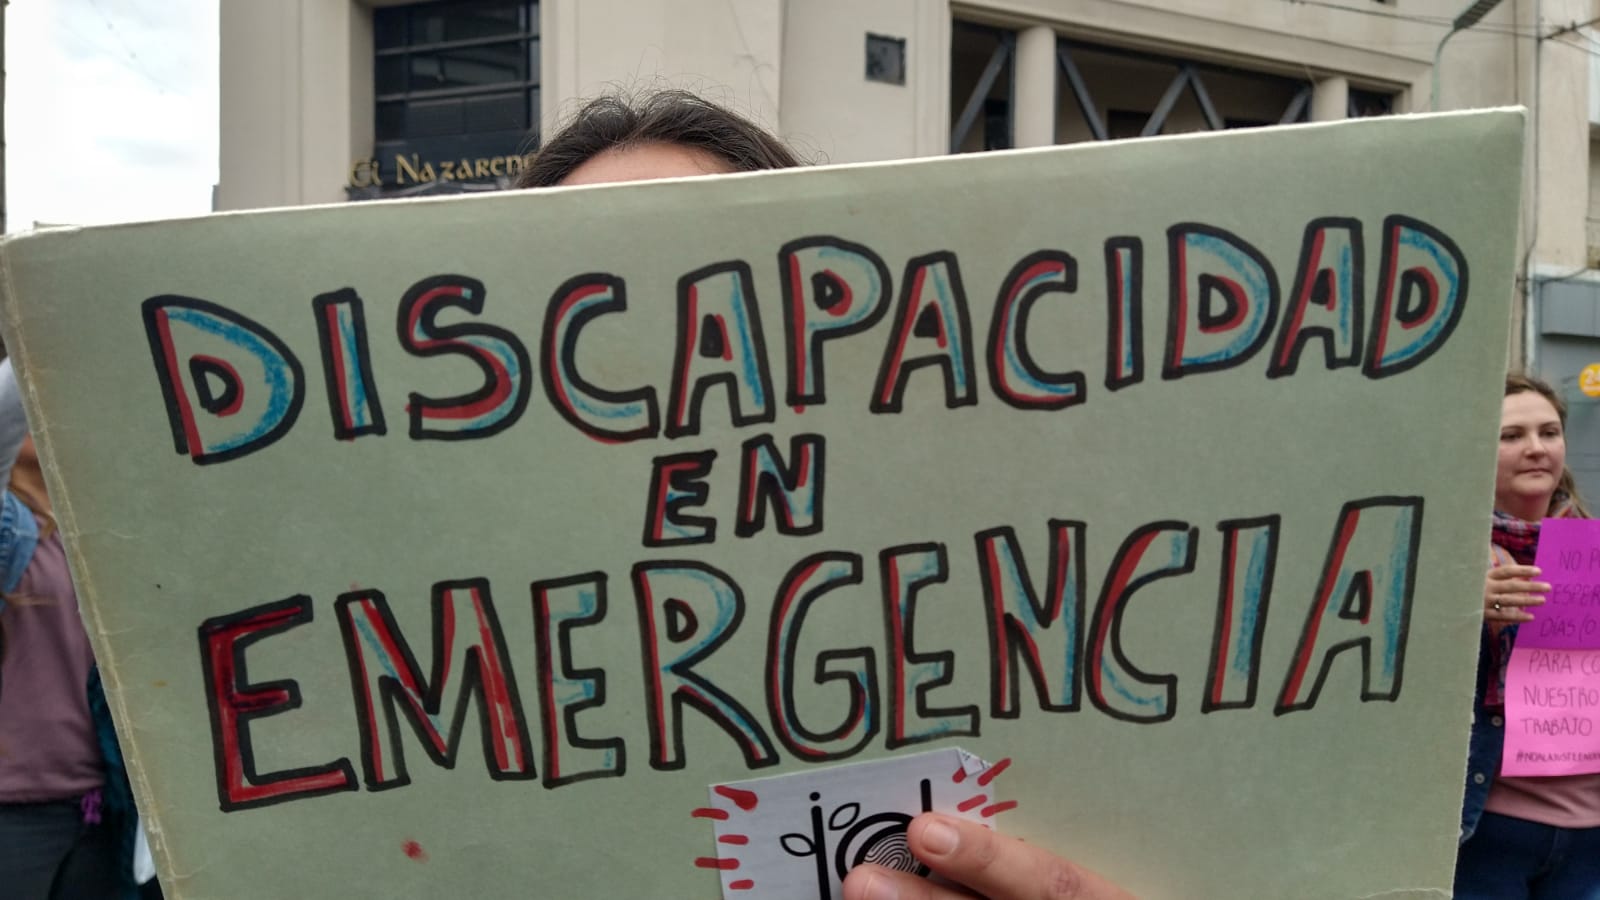 El Nazareno
DISCAPACIDAD
EN
EMERGENCIA
DÍAS/O
PARA
NUESTRO
TRABAJO